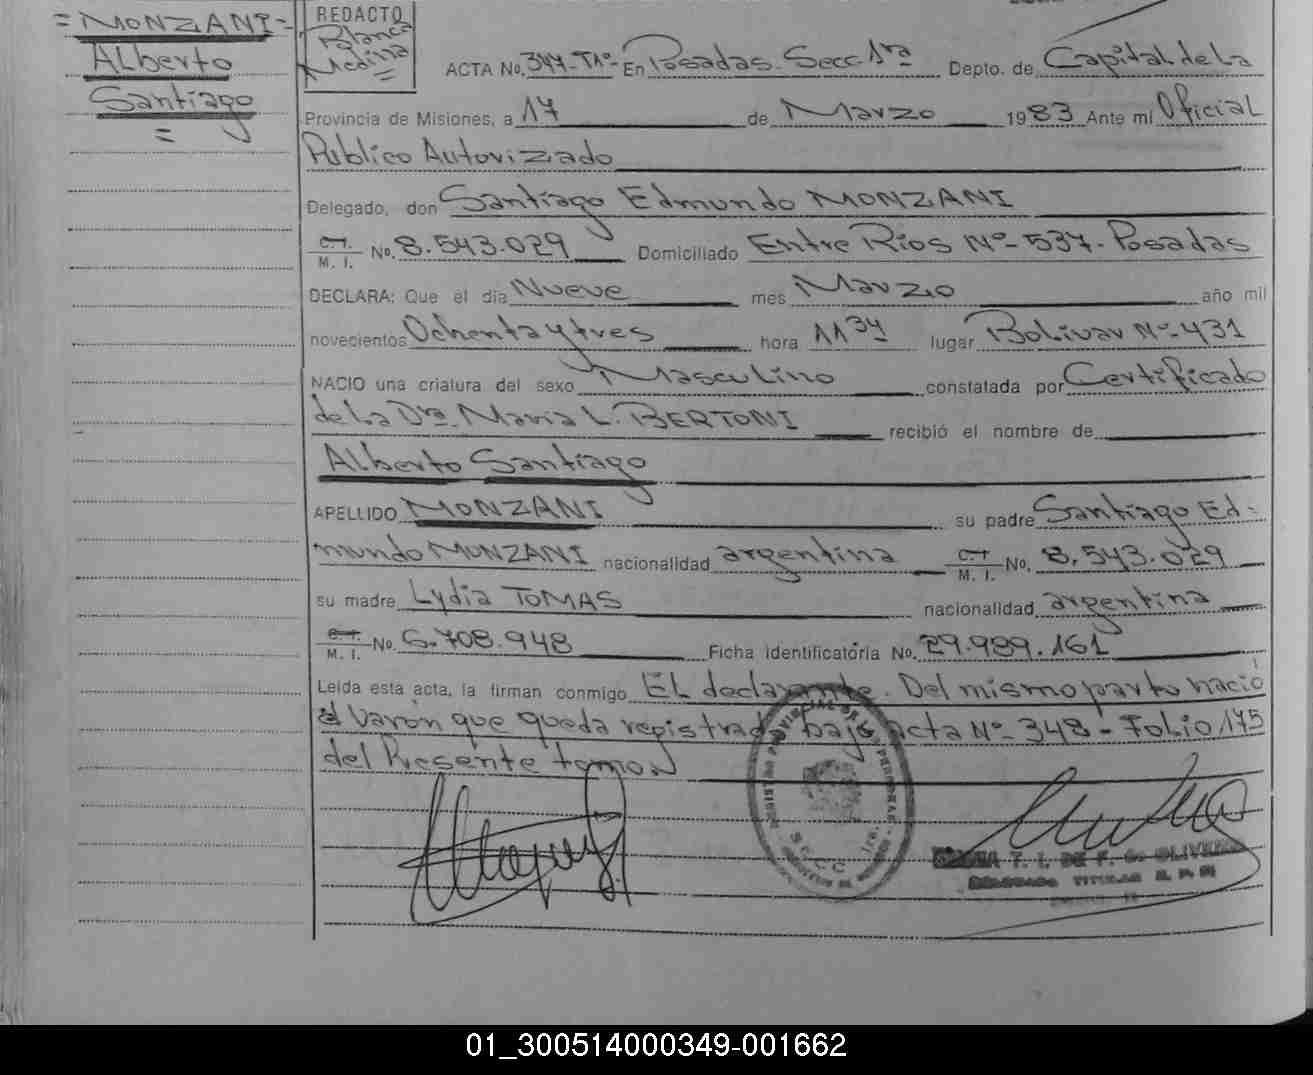 = MONZANI =
Alberto
Santiago
=
REDACTO
Blanca
Medina
=
ACTA No. 347-Tº I- En Posadas Secc. 1ra Depto. de Capital de La
Provincia de Misiones, a 17 de Marzo 1983 Ante mí Oficial
Publico Autorizado
Delegado, don Santiago Edmundo MONZANI
C.I. M. I. No. 8.543.029 Domiciliado Entre Rios Nº- 537- Posadas
DECLARA: Que el día Nueve mes Marzo año mil
novecientos Ochenta y tres hora 11 34 lugar Bolívar Nº-431
NACIO una criatura del sexo Masculino constatada por Certificado
de La Dra. Maria L. BERTONI recibió el nombre de
Alberto Santiago
APELLIDO MONZANI su padre Santiago Ed-
mundo MONZANI nacionalidad argentina C.I. M. I. No. 8.543.029
su madre Lydia TOMAS nacionalidad argentina
C.I. M. I. No 6.708.948 Ficha identificatória No. 29.989.161
Leída esta acta, la firman conmigo El declarante. Del mismo parto nació
el Varón que queda registrado bajo acta Nº- 348 - Folio 175
del Presente tomo
REGISTRO PROVINCIAL DE PERSONAS
Secc. 1ra.
T. I. DE F. de OLIVEIRA
DELEGADO TITULAR R. P. P.
01_300514000349-001662